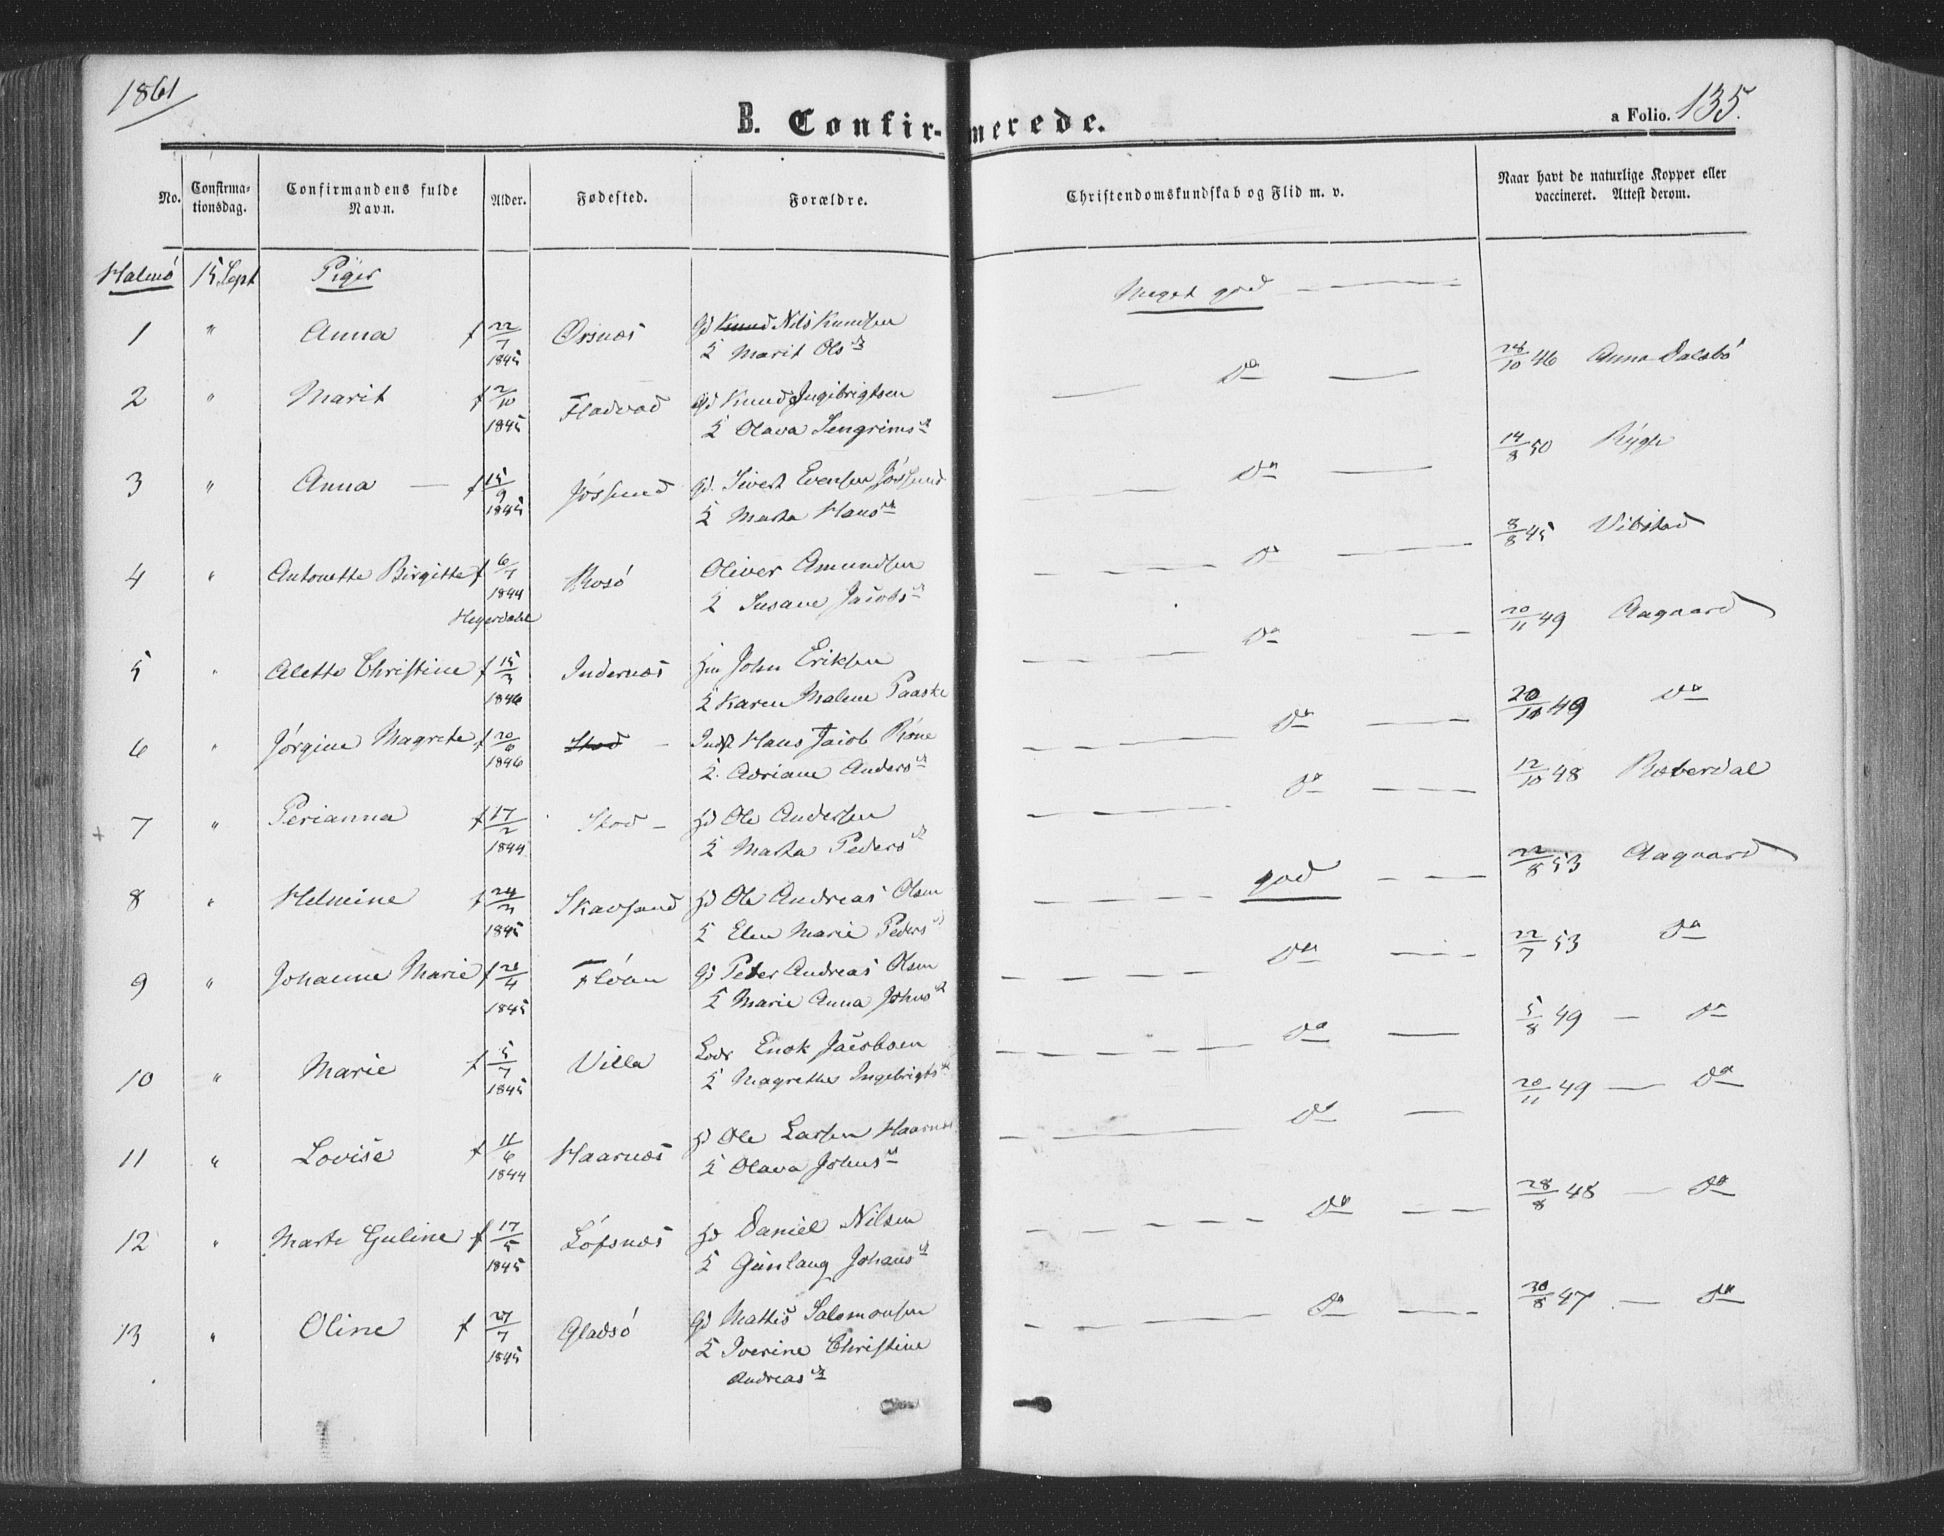 1861
B. Confirmerede.
a Folio. 135.
No. Confirmationsdag. Confirmandens fulde Navn. Alder. Fødested. Forældre. Christendomskundskab og Flid m. v. Naar havt de naturlige Kopper eller vaccineret. Attest derom.
Halmø 15 Sept Piger Meget god
1 " Anna f 22/7 1845 Ørsnæs Gd Knud Nils Knudsen
K Marit Olsdr do 28/10 46 Anna Dalsbø
2 " Marit f 2/10 1845 Fladvad Gd Knud Ingibrigtsen
K Olava Sengrimsdr do 14/8 50 Rygh
3 " Anna f 15/9 1845 Jøssund Gd. Sivert Evensen Jøssund
K Marta Hansdr do 8/8 45 Vibstad
4 " Antonette Birgitte Heyerdahl f 6/7 1844 Rosø Oliver Amundsen
K Susane Jacobsdr do 20/11 49 Aagaard
5 " Alette Christine f 15/3 1846 Indernæs Hm John Eriksen
K Karen Malene Paaske do 20/10 49 do
6 " Jørgine Magrete f 20/6 1846 Stod Indst Hans Jacob Røne
K. Adriane Andersdr do 12/10 48 Ræberdal
7 " Perianna f 17/2 1844 Stod Hd Ole Andersen
K Marta Pedersdr god 22/8 53 Aagaard
8 " Helmine f 24/3 1845 Skavsand Hd Ole Andreas Olsen
K Elen Marie Pedersdr do 22/7 53 do
9 " Johanne Marie f 21/4 1845 Fløan Gd Peter Andreas Olsen
K Marie Anna Johnsdr do 5/8 49 do
10 " Marie f 5/7 1845 Villa Lods Enok Jacobsen
K Magrethe Ingebrigtsdr do 20/11 49 do
11 " Lovise f 11/6 1844 Haarnæs Hd Ole Larsen Haarnæs
K Olava Johnsdr do 28/8 48 do
12 " Marte Guline f 17/5 1845 Løfsnæs Hd Daniel Nilsen
K Gunlaug Johansdr do 30/8 47 do
13 " Oline f 27/7 1845 Gladsø Gd Mattis Salomonsen
K Iverine Christine
Andreasdr